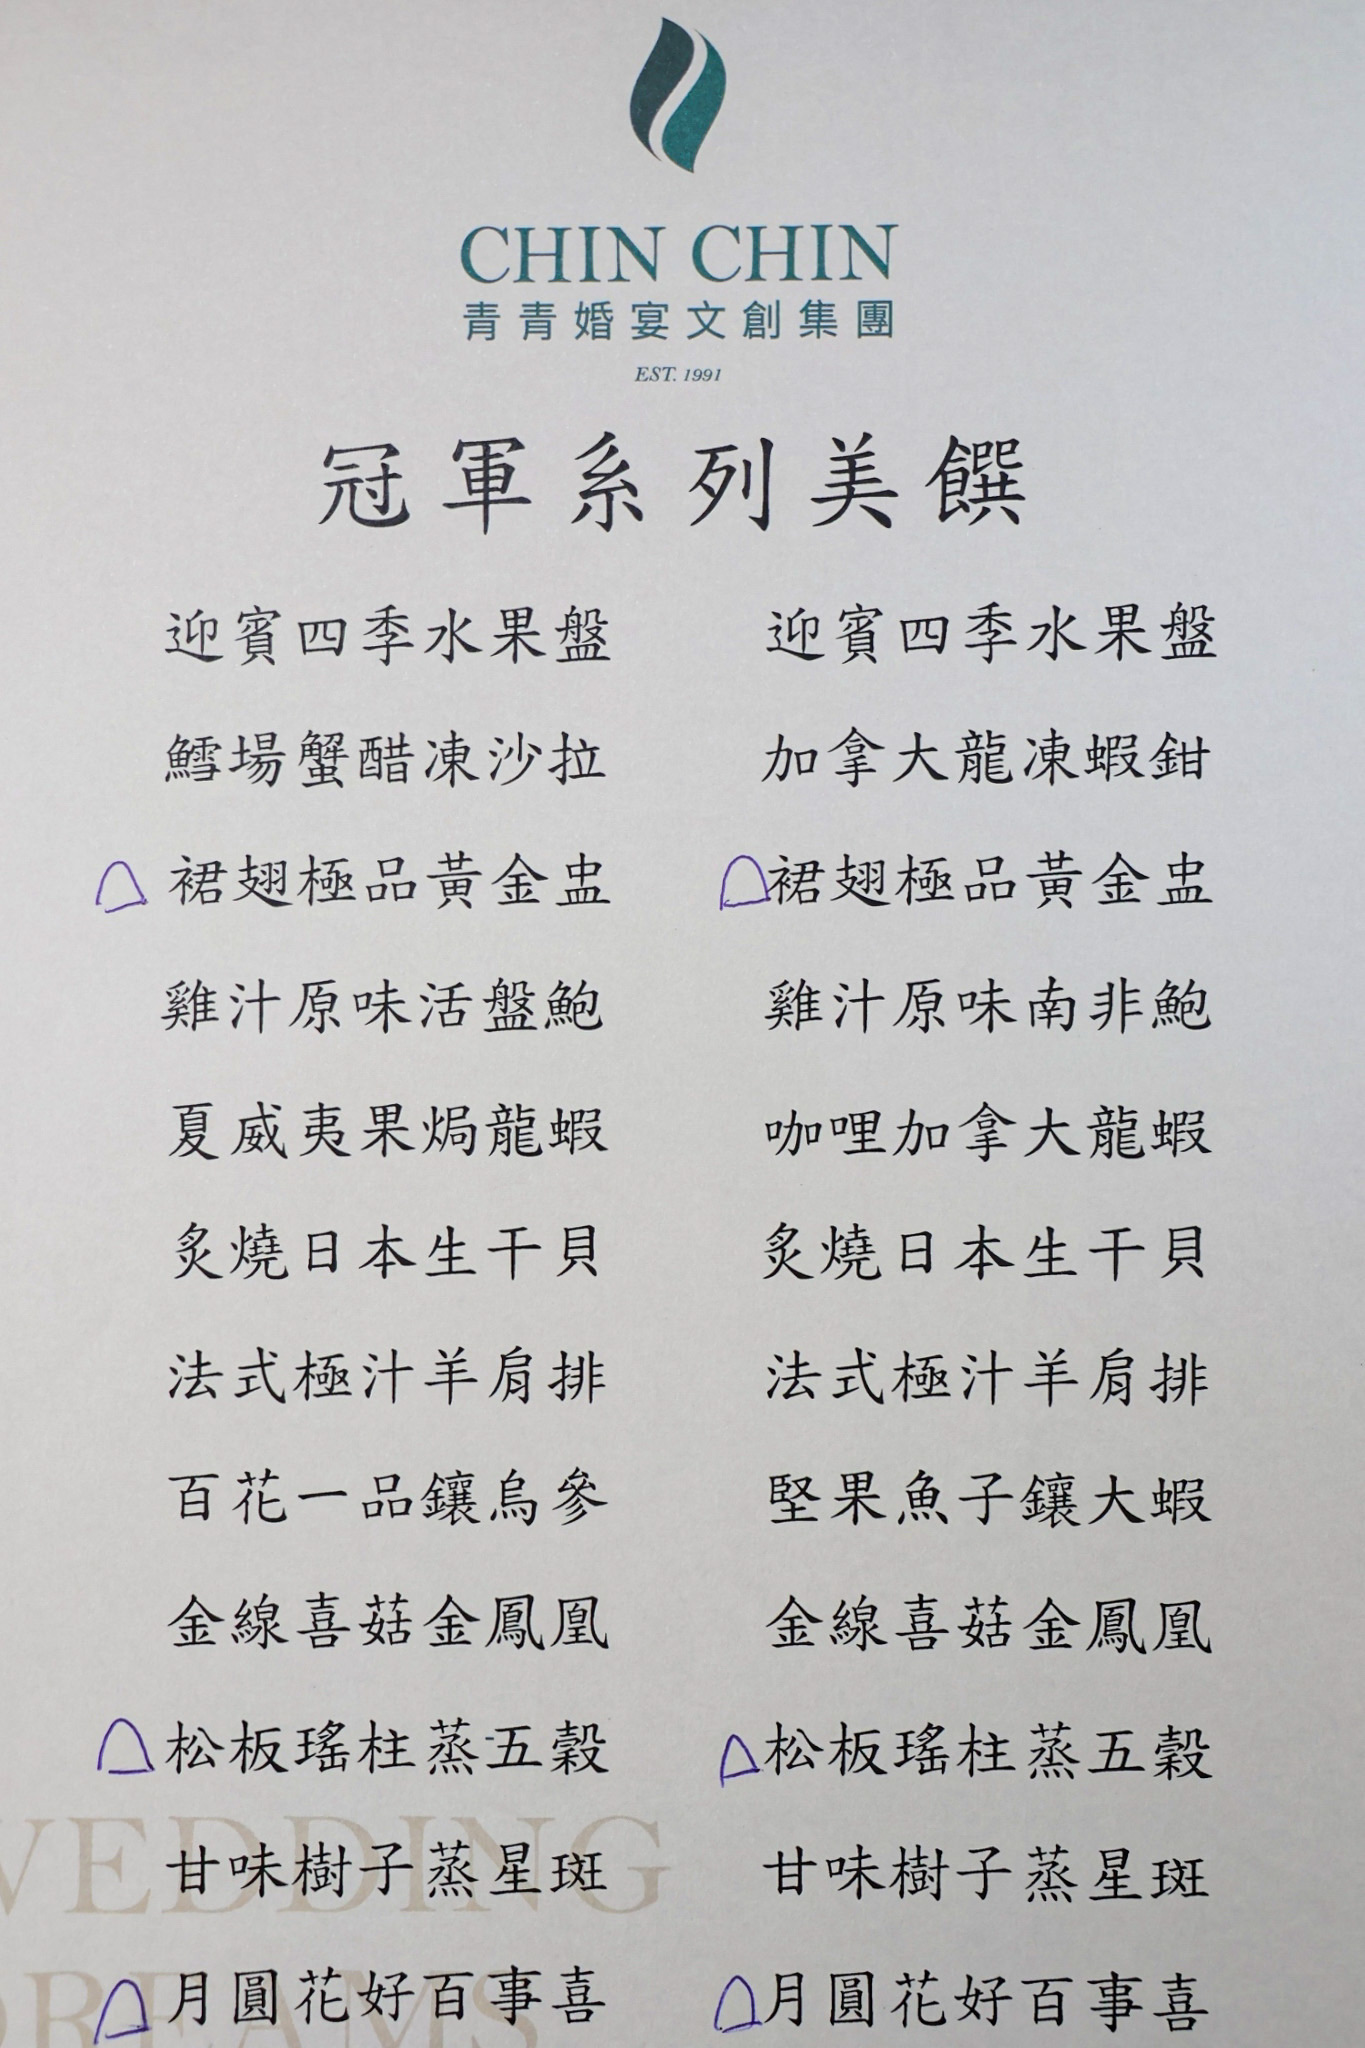 CHIN CHIN
青青婚宴文創集團
EST. 1991
冠軍系列美饌
迎賓四季水果盤
鱈場蟹醋凍沙拉
裙翅極品黃金盅
雞汁原味活盤鮑
夏威夷果焗龍蝦
炙燒日本生干貝
法式極汁羊肩排
百花一品鑲烏參
金線喜菇金鳳凰
松板瑤柱蒸五穀
甘味樹子蒸星斑
月圓花好百事喜
迎賓四季水果盤
加拿大龍凍蝦鉗
裙翅極品黃金盅
雞汁原味南非鮑
咖哩加拿大龍蝦
炙燒日本生干貝
法式極汁羊肩排
堅果魚子鑲大蝦
金線喜菇金鳳凰
松板瑤柱蒸五穀
甘味樹子蒸星斑
月圓花好百事喜
WEDDING
DREAMS